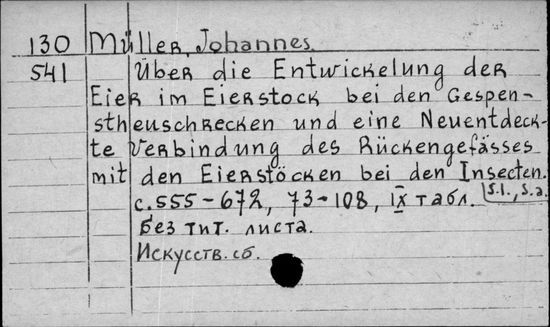 130 Müller, Johannes.
541 Über die Entwickelung der
Eier im Eierstock bei den Gespen-
stheuschrecken und eine Neuentdeck-
te Verbindung des Rückengefässes
mit den Eierstöcken bei den Insecten.
с. 555-672, 73-108, IX табл. s.l., s.a.
без тит. листа.
Искусств. сб.